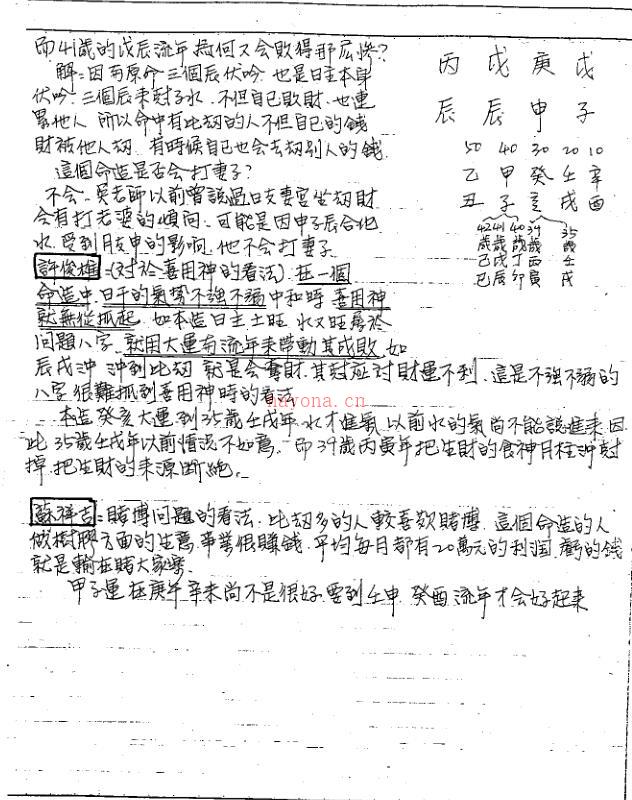 即41歲的戊辰流年為何又会敗得那么慘?
解:因為原命三個辰伏吟.也是日主本身
伏吟.三個辰來尅子水.不但自己敗財.也連
累他人.所以命中有比劫的人不但自己的錢
財被他人劫.有時候自己也会去劫別人的錢.
這個命造是否会打妻子?
不会.吳老師以前曾談過日支妻宮坐劫財
会有打老婆的傾向.可能是因申子辰合化
水.受到月支申的影响.他不会打妻子
丙戊庚戊
辰辰申子
50 40 30 20 10
乙甲癸壬辛
丑子亥戌酉
42歲 41歲 40歲 39歲 35歲
己戊丁丙壬
巳辰卯寅戌
許俊雄:(对於喜用神的看法).在一個
命造中.日干的氣勢不強不弱中和時.喜用神
就無從抓起.如本造日主土旺.水又旺.屬於
問題八字.就用大運有流年來帶動其成敗.如
辰戌沖.沖到比劫.就是会奪財.其尅应对財運不利.這是不強不弱的
八字很難抓到喜用神時的看法
本造癸亥大運.到35歲壬戌年.水才進氣.以前水的氣尚不能說進來.因
此35歲壬戌年以前情況不如意.即39歲丙寅年把生財的食神月柱沖尅
掉.把生財的來源断絕.
nayona.cn
蘇祥吉:賭博问題的看法.比劫多的人較喜欢賭博.這個命造的人
做樹膠方面的生意.事業很賺錢.平均每月都有20萬元的利润.虧的錢
就是輸在賭大家樂.
甲子運在庚午辛未尚不是很好.要到壬申.癸酉.流年才会好起來